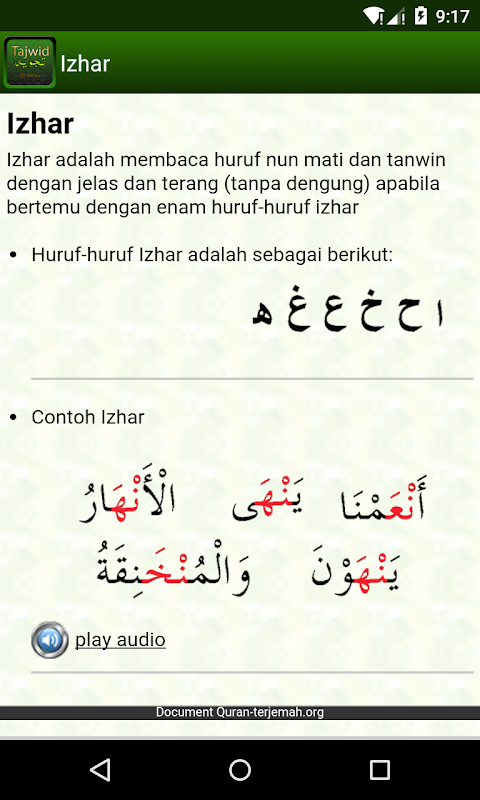 9:17
Tajwid
تجويد
Izhar
Izhar
Izhar adalah membaca huruf nun mati dan tanwin
dengan jelas dan terang (tanpa dengung) apabila
bertemu dengan enam huruf-huruf izhar
Huruf-huruf Izhar adalah sebagai berikut:
ا ح خ ع غ ه
Contoh Izhar
أَنْعَمْنَا يَنْهَى الْأَنْهَارُ
يَنْهَوْنَ وَالْمُنْخَنِقَةُ
play audio
Document Quran-terjemah.org